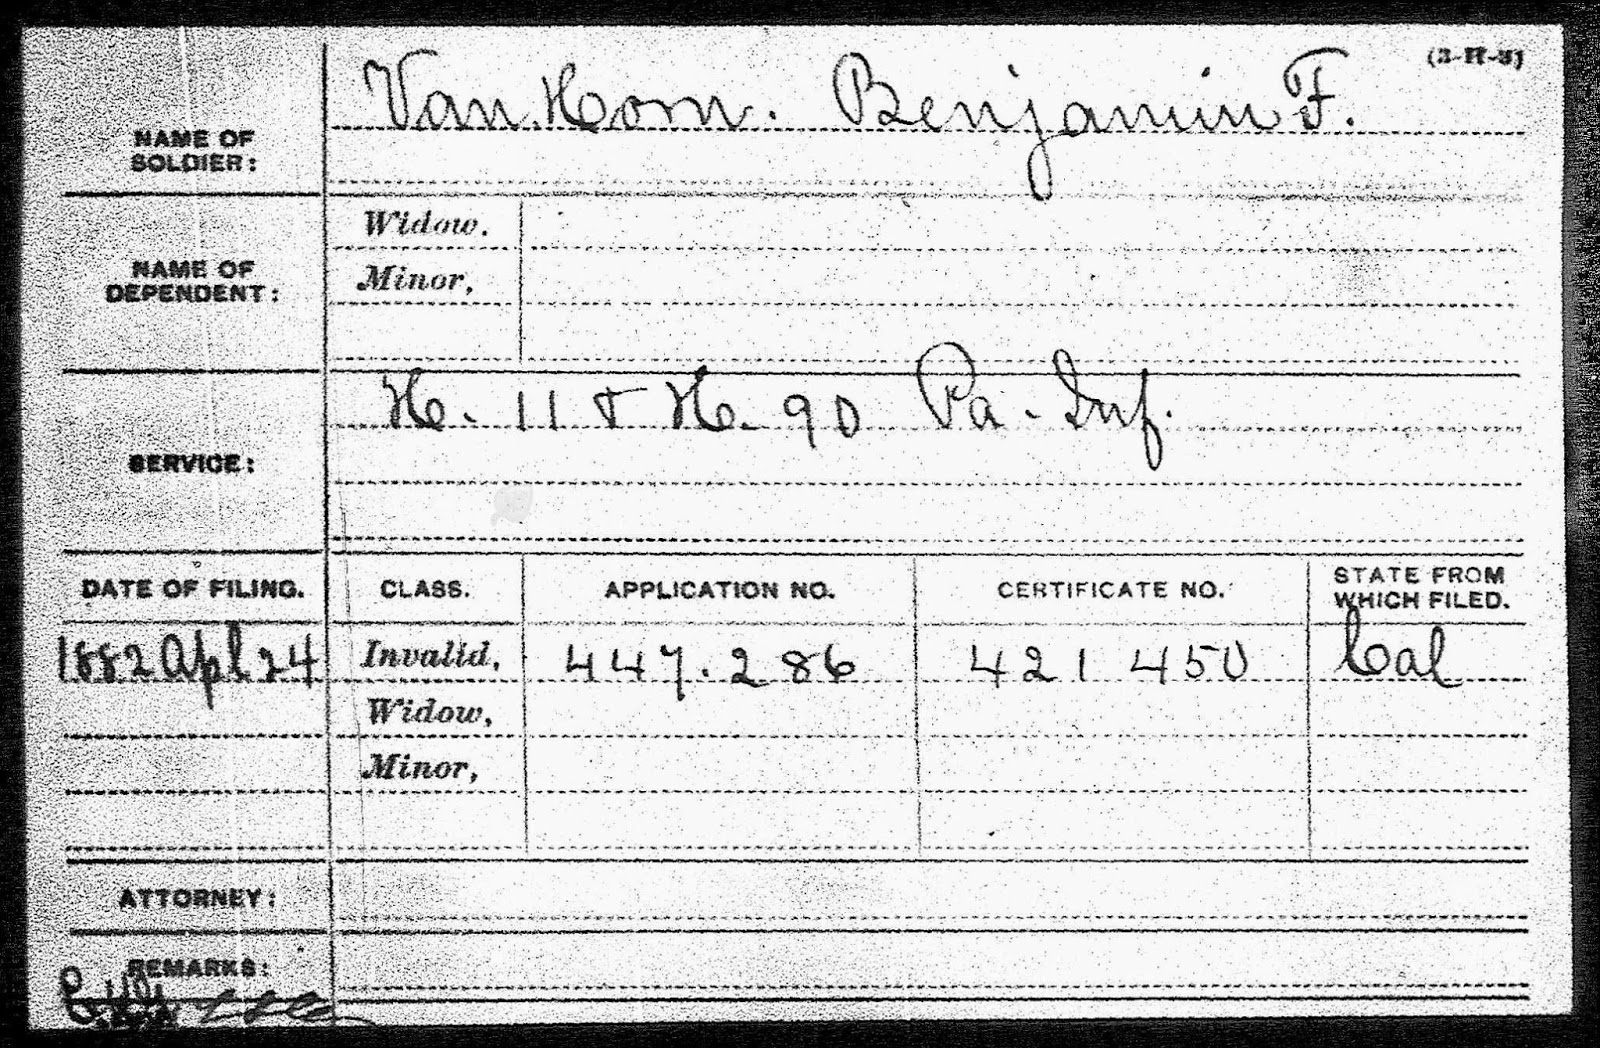 (3-H-3)
NAME OF SOLDIER: Van Horn. Benjamin F.
NAME OF DEPENDENT: Widow.
Minor,
SERVICE: H. 11 & H. 90 Pa. Inf.
DATE OF FILING. CLASS. APPLICATION NO. CERTIFICATE NO. STATE FROM WHICH FILED.
1882 Apl 24 Invalid, 447.286 421 450 Cal
Widow,
Minor,
ATTORNEY:
REMARKS: